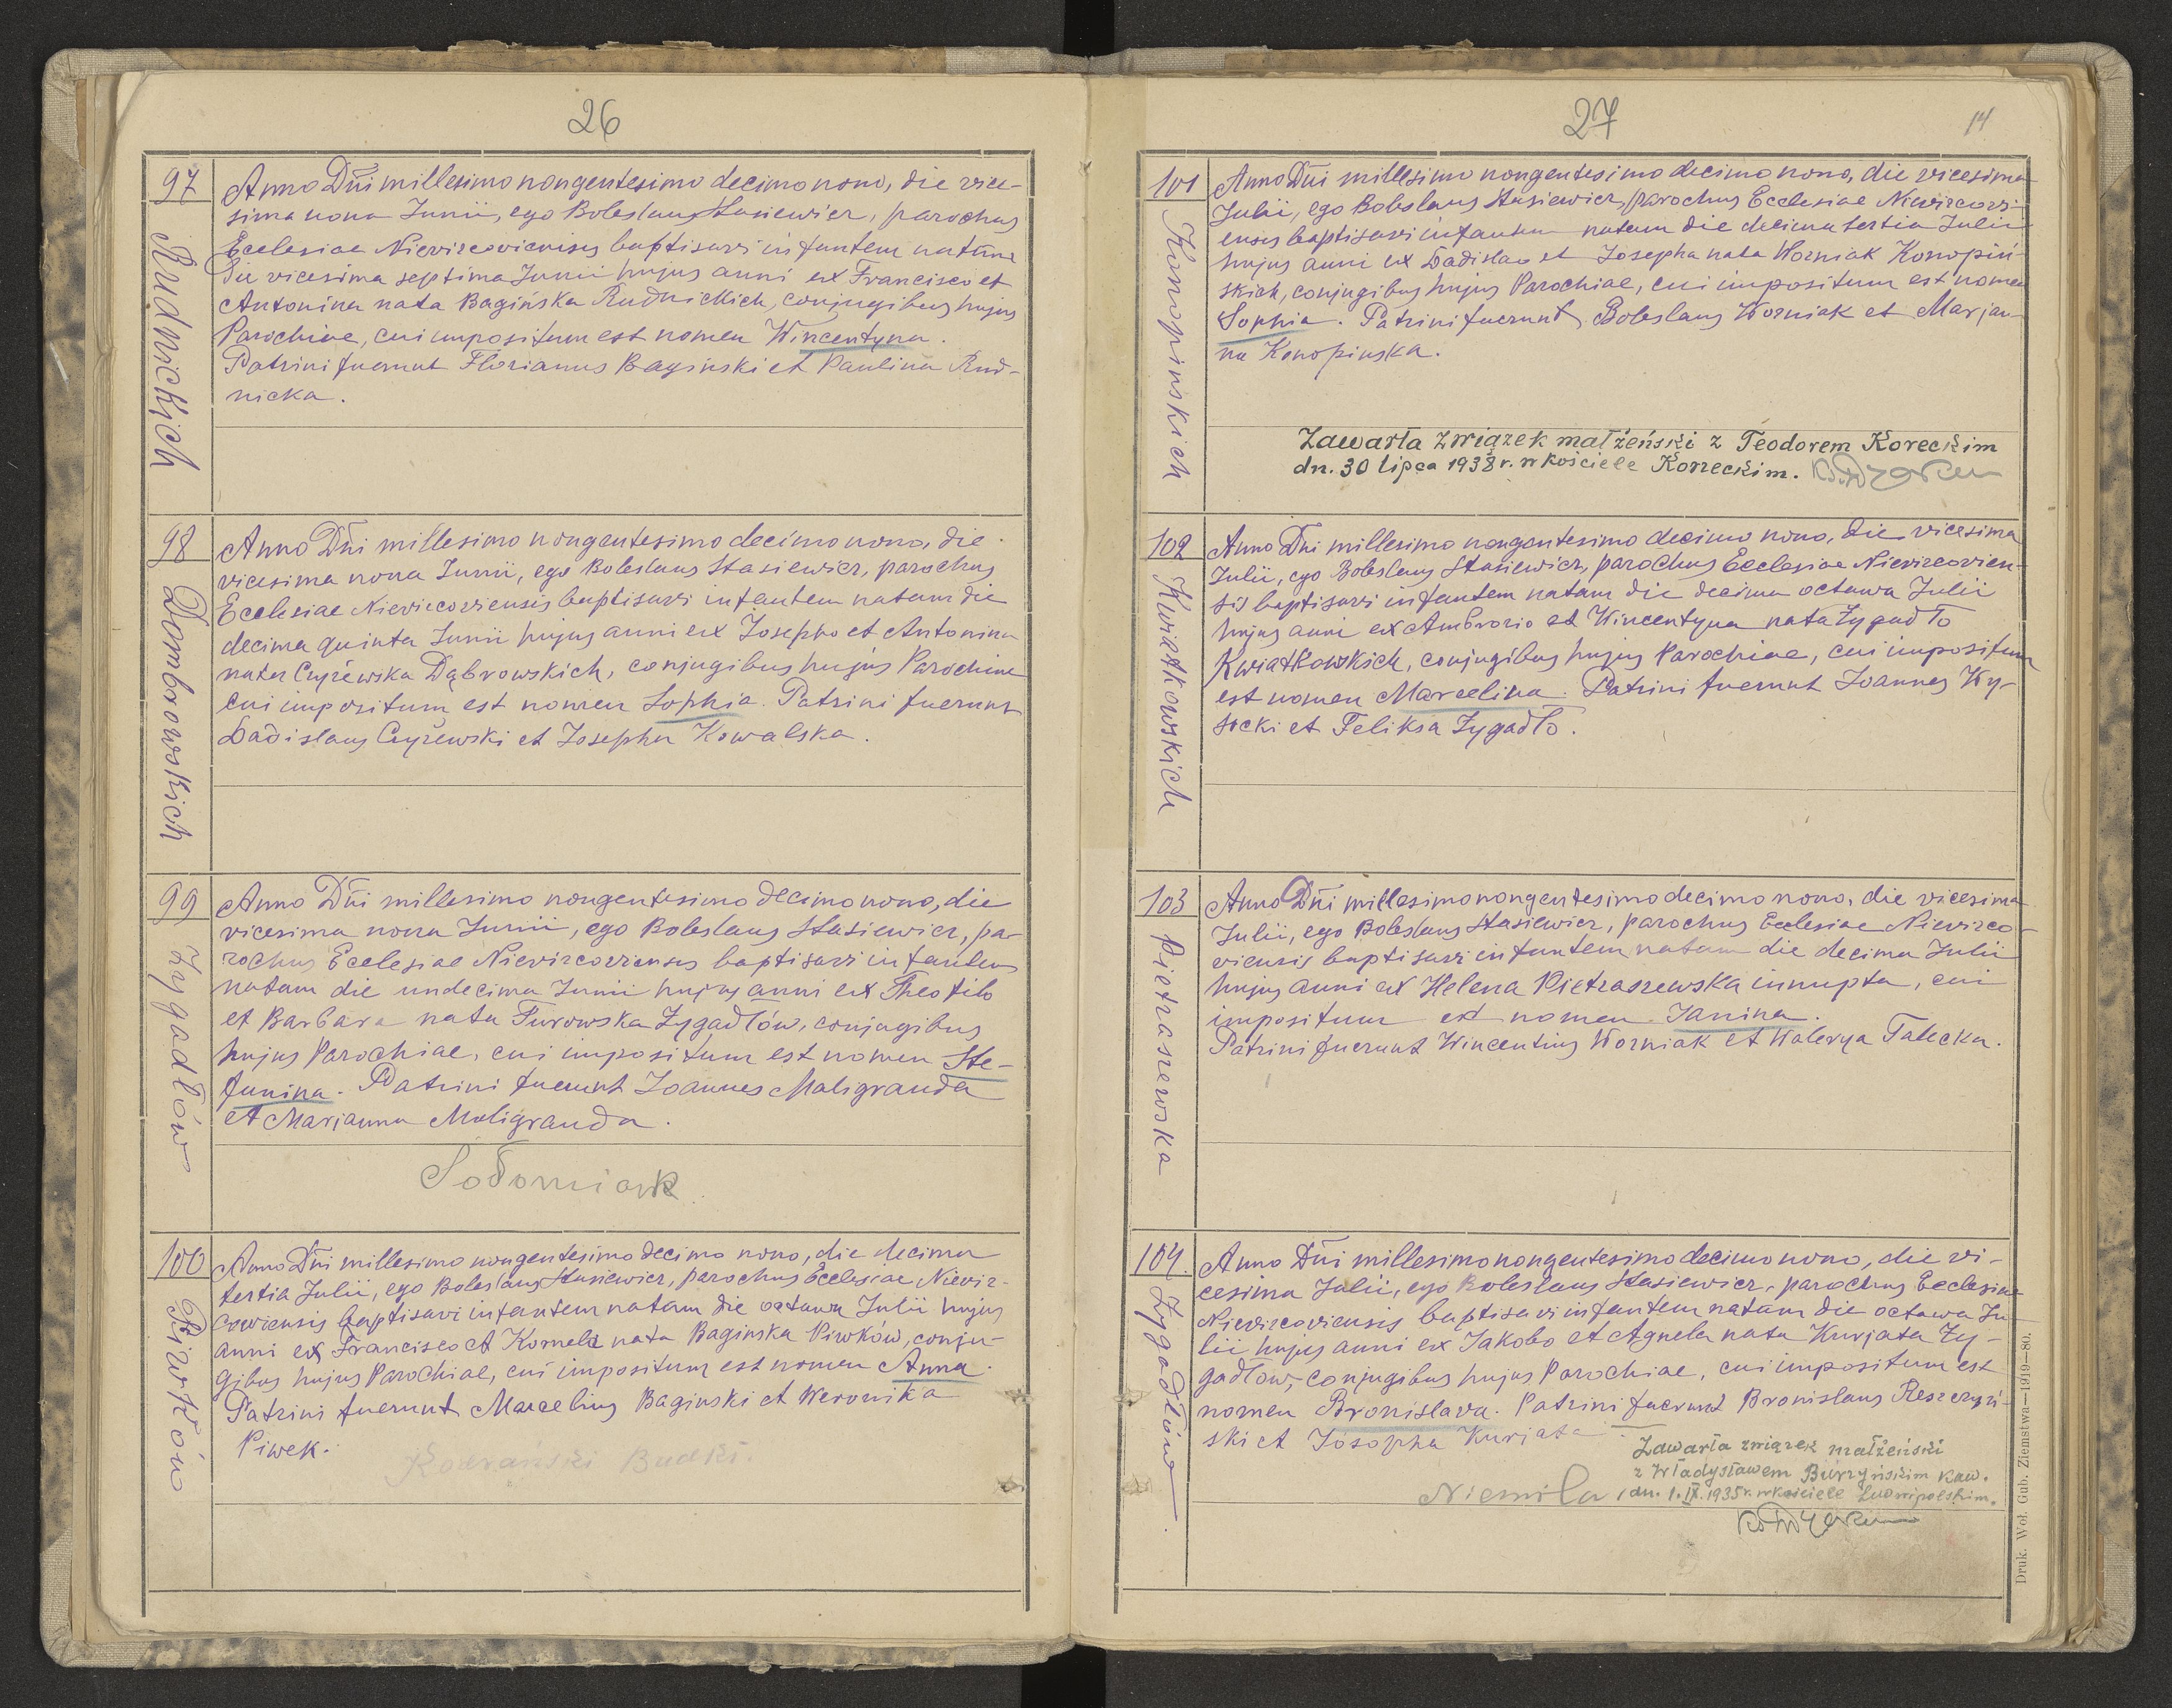 26
97
Rudnickich
Anno Dñi millesimo nongentesimo decimo nono, die vice-
sima nona Junii, ego Boleslaus Stasiewicz, parochus
Ecclesiae Nievircoviensis baptisavi infantem natam
die vicesima septima Junii hujus anni ex Francisco et
Antonina nata Bagińska Rudnickich, conjugibus hujus
Parochiae, cui impositum est nomen Wincentyna.
Patrini fuerunt Florianus Baginski et Paulina Rud-
nicka.
98
Dombrowskich
Anno Dñi millesimo nongentesimo decimo nono, die
vicesima nona Junii, ego Boleslaus Stasiewicz, parochus
Ecclesiae Nievircoviensis baptisavi infantem natam die
decima quinta Junii hujus anni ex Josepho et Antonina
nata Czyżewska Dąbrowskich, conjugibus hujus Parochiae
cui impositum est nomen Sophia. Patrini fuerunt
Ladislaus Czyżewski et Josepha Kowalska.
99
Zygadłów
Anno Dñi millesimo nongentesimo decimo nono, die
vicesima nona Junii, ego Boleslaus Stasiewicz, pa-
rochus Ecclesiae Nievircoviensis baptisavi infantem
natam die undecima Junii hujus anni ex Theofilo
et Barbara nata Turowska Zygadłów, conjugibus
hujus Parochiae, cui impositum est nomen Ste-
fanina. Patrini fuerunt Joannes Maligranda
et Marjanna Maligranda.
100
Piwków
Anno Dñi millesimo nongentesimo decimo nono, die decima
tertia Julii, ego Boleslaus Stasiewicz, parochus Ecclesiae Nievir-
coviensis baptisavi infantem natam die octawa Julii hujus
anni ex Francisco et Kornela nata Baginska Piwków, conju-
gibus hujus Parochiae, cui impositum est nomen Anna.
Patrini fuerunt Marcelius Baginski et Weronika
Piwek.
Budki.
27
14
101
Konopinskich
Anno Dñi millesimo nongentesimo decimo nono, die vicesima
Julii, ego Boleslaus Stasiewicz, parochus Ecclesiae Nievircovi-
ensis baptisavi infantem natam die decima tertia Julii
hujus anni ex Ladislao et Josepha nata Wozniak Konopiń-
skich, conjugibus hujus Parochiae, cui impositum est nomen
Sophia. Patrini fuerunt Boleslaus Wozniak et Marjan-
na Konopinska.
Zawarła związek małżeński z Teodorem Koreckim
dn. 30 lipca 1938 r. w kościele Koreckim.
102
Kwiatkowskich
Anno Dñi millesimo nongentesimo decimo nono, die vicesima
Julii, ego Boleslaus Stasiewicz, parochus Ecclesiae Nievircovien-
sis baptisavi infantem natam die decima octawa Julii
hujus anni ex Ambrozio et Wincentyna nata Zygadło
Kwiatkowskich, conjugibus hujus Parochiae, cui impositum
est nomen Marcelina. Patrini fuerunt Joannes Wy-
socki et Feliksa Zygadło.
103
Pietraszewska
Anno Dñi millesimo nongentesimo decimo nono, die vicesima
Julii, ego Boleslaus Stasiewicz, parochus Ecclesiae Nievirco-
viensis baptisavi infantem natam die decima Julii
hujus anni ex Helena Pietraszewska innupta, cui
impositum est nomen Janina.
Patrini fuerunt Wincentius Wozniak et Walerya Talecka.
104.
Zygadłów
Anno Dñi millesimo nongentesimo decimo nono, die vi-
cesima Julii, ego Boleslaus Stasiewicz, parochus Ecclesiae
Nievircoviensis baptisavi infantem natam die octawa Ju-
lii hujus anni ex Jakobo et Agnela nata Kurjata Zy-
gadłow, conjugibus hujus Parochiae, cui impositum est
nomen Bronislava. Patrini fuerunt Bronislaus Reszczyń-
ski et Josepha Kurjata
Zawarła związek małżeński
z Władysławem Burzyńskim kaw.
Niemila
dn. 1.IX.1935 r. w kościele Ludwipolskim.
Druk. Woł. Gub. Ziemstwa—1919—80.